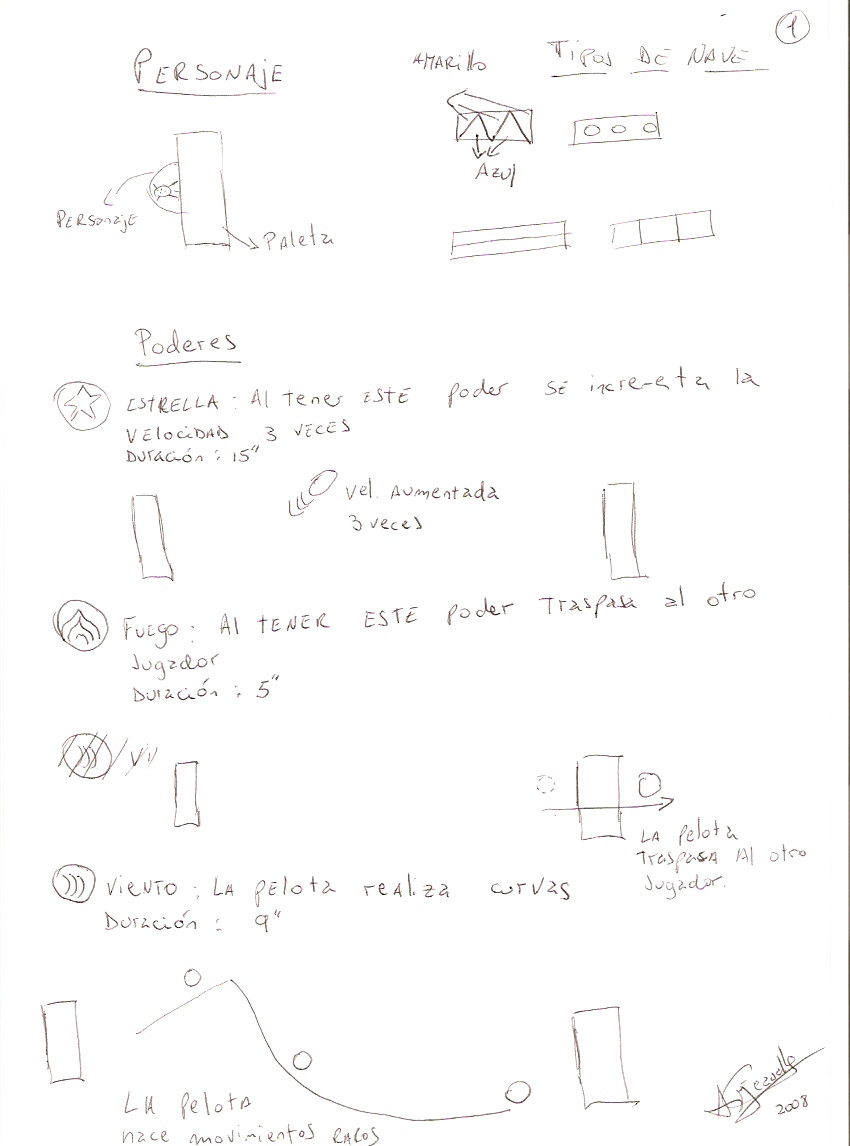 1
PERSONAJE
AMARillo
TIPOS DE NAVE
AZUl
PERSONAJE
PALETA
Poderes
ESTRELLA : Al tener ESTE poder SE increments la
VELOCIDAD 3 VECES
Duración : 15"
Vel. AUMENTADA
3 veces
FUEGO : Al TENER ESTE poder TRASPASA al otro
Jugador
Duración : 5"
LA pelota
TRASPASA Al otro
Jugador.
VIENTO : LA PELOTA realiza curvas
Duración : 9"
LA PELOTA
hace movimientos RAROS
2008